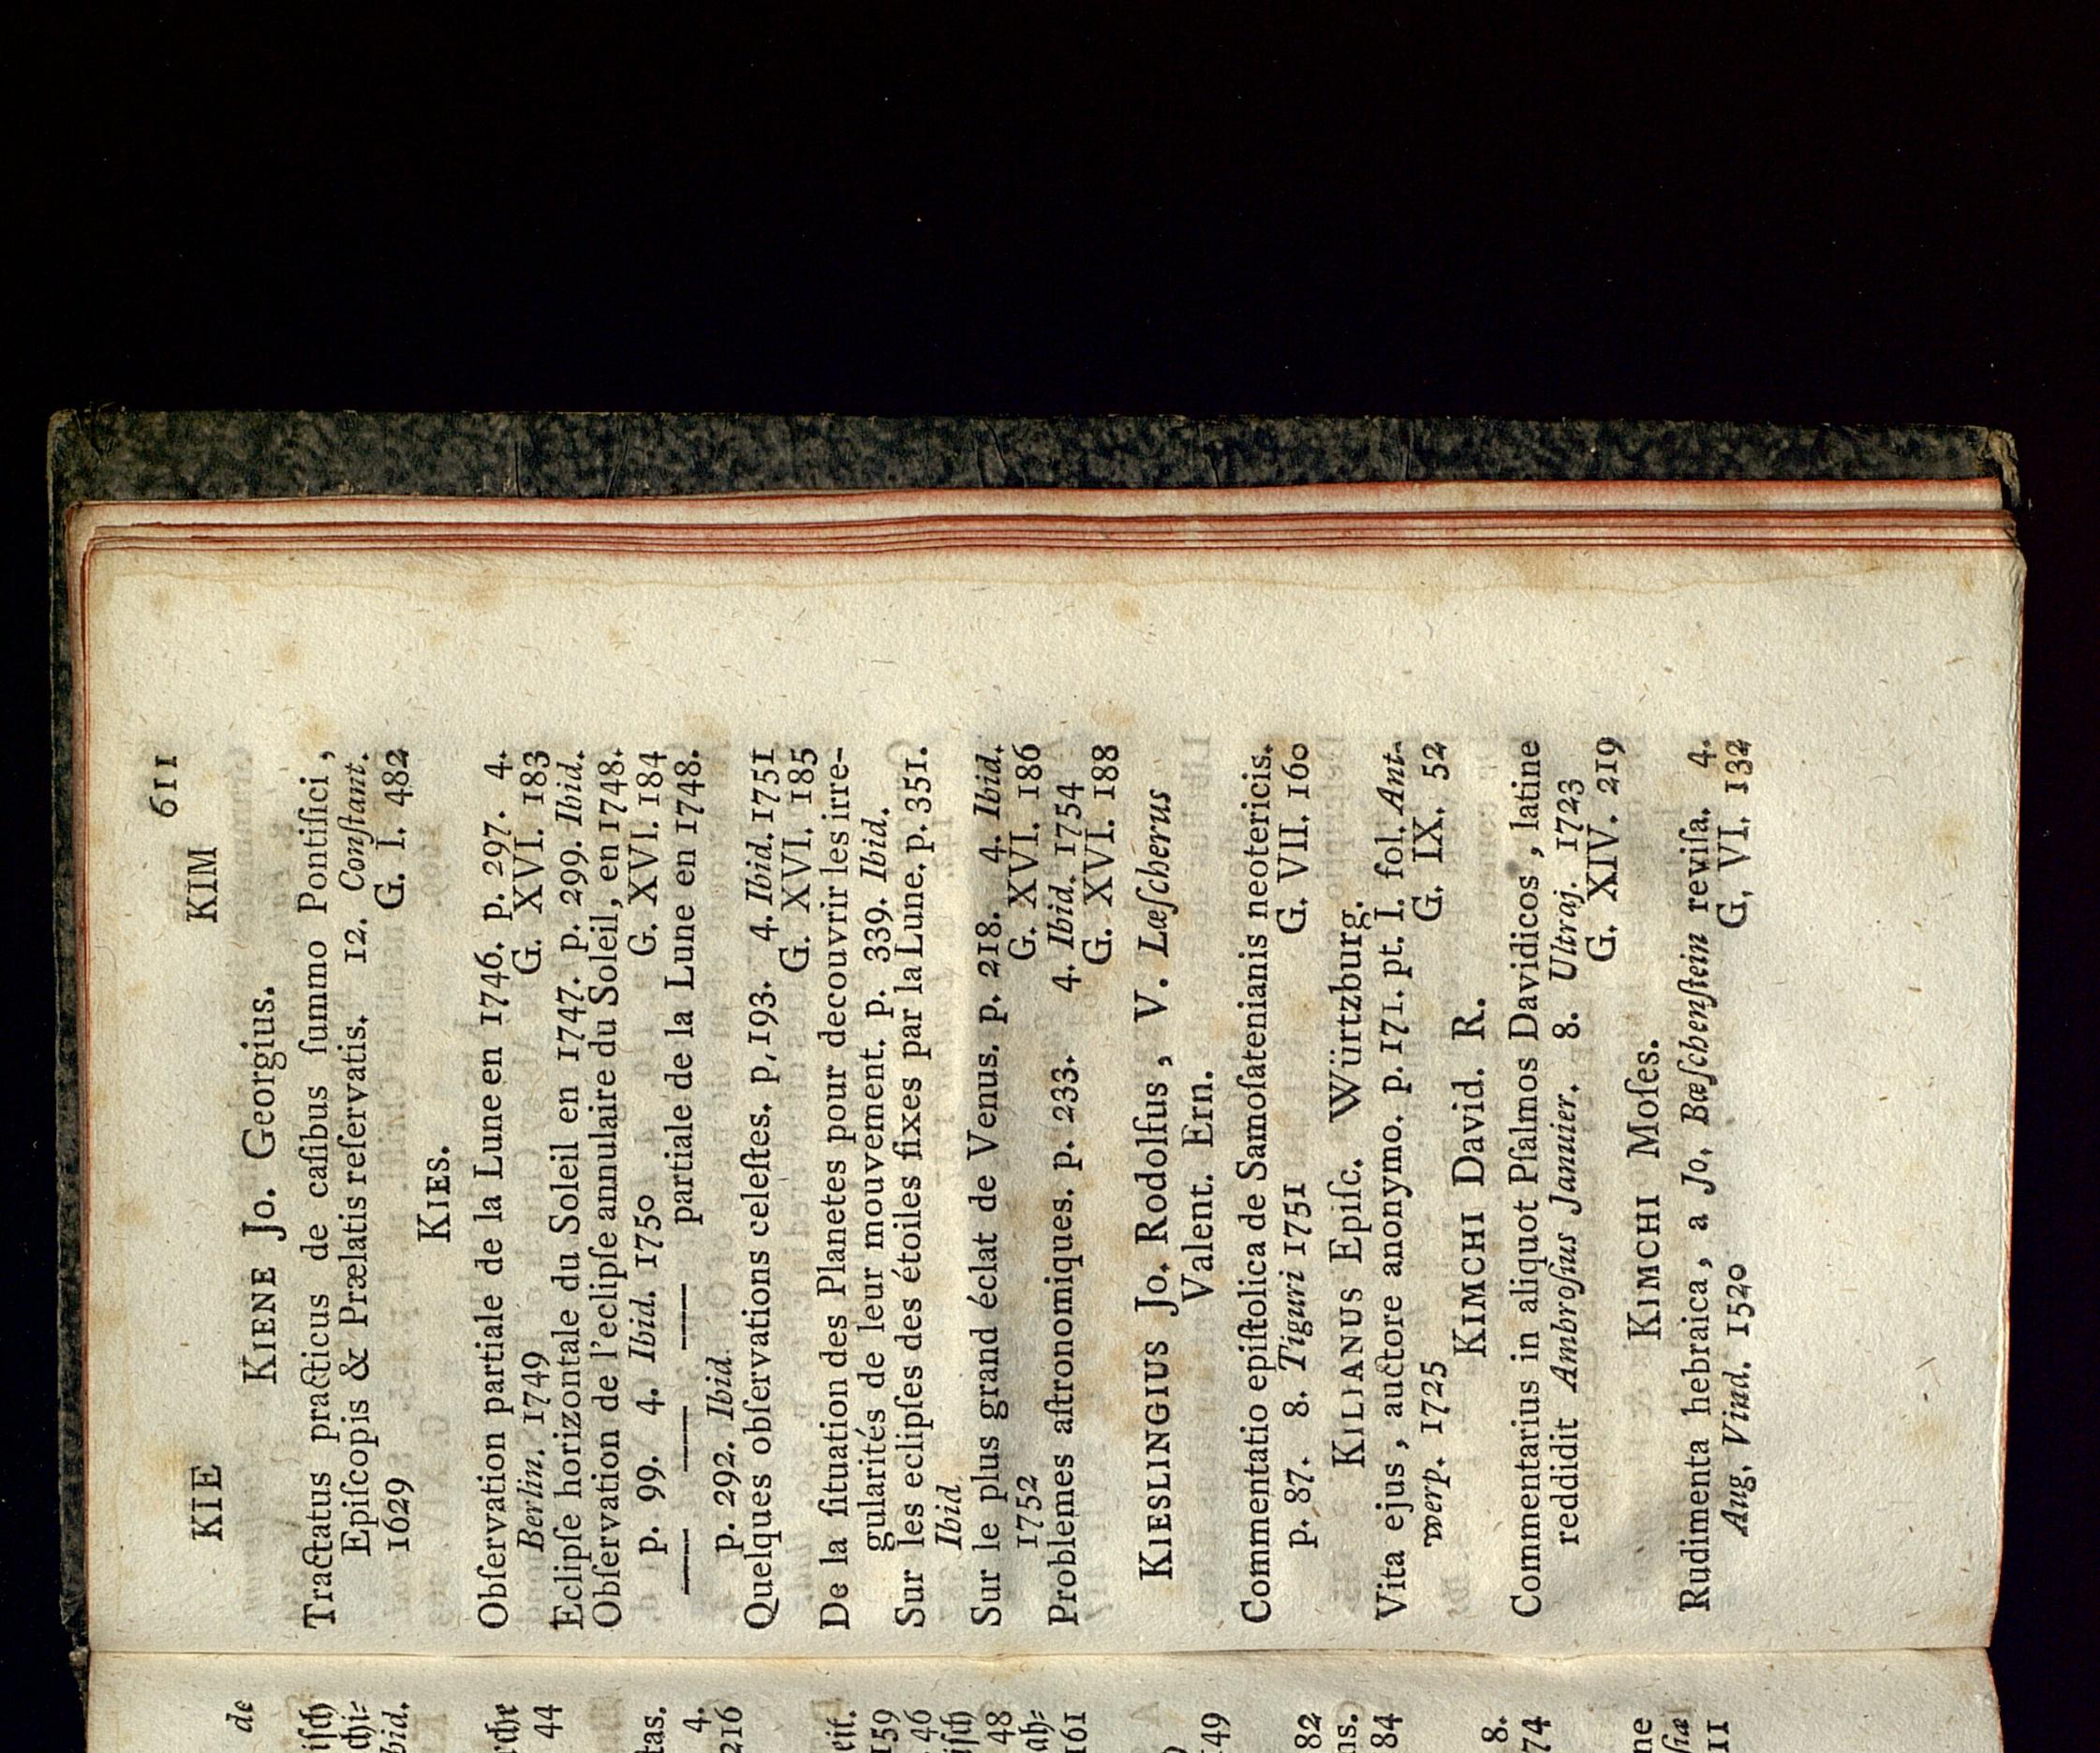 KIE KIM 611
KIENE Jo. Georgius.
Tractatus practicus de caſibus ſummo Pontifici,
Epiſcopis & Prælatis reſervatis. 12. Conſtant.
1629 G. I. 482
KIES.
Obſervation partiale de la Lune en 1746. p. 297. 4.
Berlin. 1749 G. XVI. 183
Eclipſe horizontale du Soleil en 1747. p. 299. Ibid.
Obſervation de l'eclipſe annulaire du Soleil, en 1748.
p. 99. 4. Ibid. 1750 G. XVI. 184
—— —— —— partiale de la Lune en 1748.
p. 292. Ibid.
Quelques obſervations celeſtes. p. 193. 4. Ibid. 1751
G. XVI. 185
De la ſituation des Planetes pour decouvrir les irre-
gularités de leur mouvement. p. 339. Ibid.
Sur les eclipſes des étoiles fixes par la Lune. p. 351.
Ibid.
Sur le plus grand éclat de Venus. p. 218. 4. Ibid.
1752 G. XVI. 186
Problemes aſtronomiques. p. 233. 4. Ibid. 1754
G. XVI. 188
KIESLINGIUS Jo. Rodolfus, V. Læſcherus
Valent. Ern.
Commentatio epiſtolica de Samoſatenianis neotericis.
p. 87. 8. Tiguri 1751 G. VII. 160
KILIANUS Epiſc. Würtzburg.
Vita ejus, auctore anonymo. p. 171. pt. I. fol. Ant-
werp. 1725 G. IX. 52
KIMCHI David. R.
Commentarius in aliquot Pſalmos Davidicos, latine
reddidit Ambroſius Janvier. 8. Ultraj. 1723
G. XIV. 219
KIMCHI Moſes.
Rudimenta hebraica, a Jo. Bæſchenſtein reviſa. 4.
Aug. Vind. 1520 G. VI. 132
de
iſch
chi-
bid.
44
tas.
4.
216
eit.
159
46
iſch
48
ah-
161
149
82
ns.
84
8.
74
ne
ſiæ
11